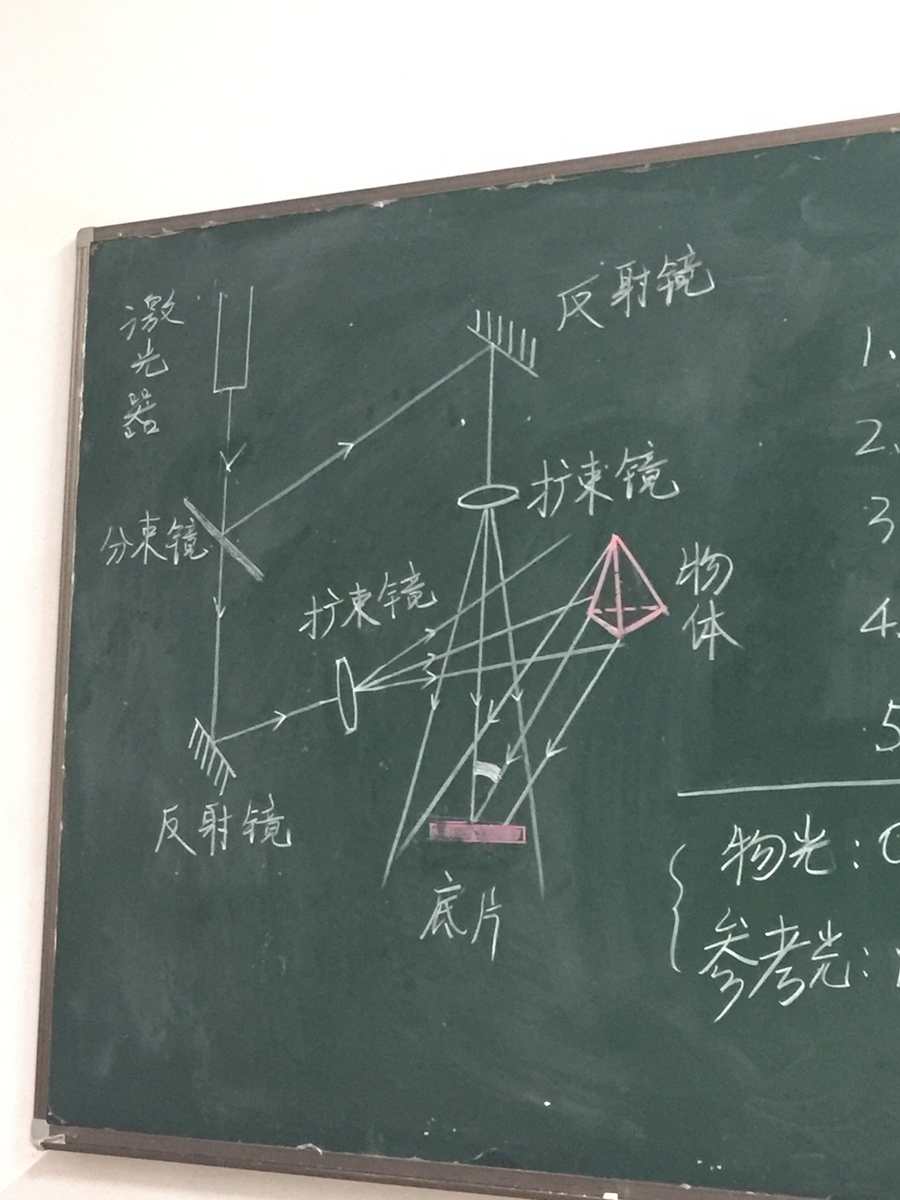 激光器
反射镜
分束镜
扩束镜
扩束镜
物体
反射镜
底片
1.
2.
3
4.
5
物光：
参考光：